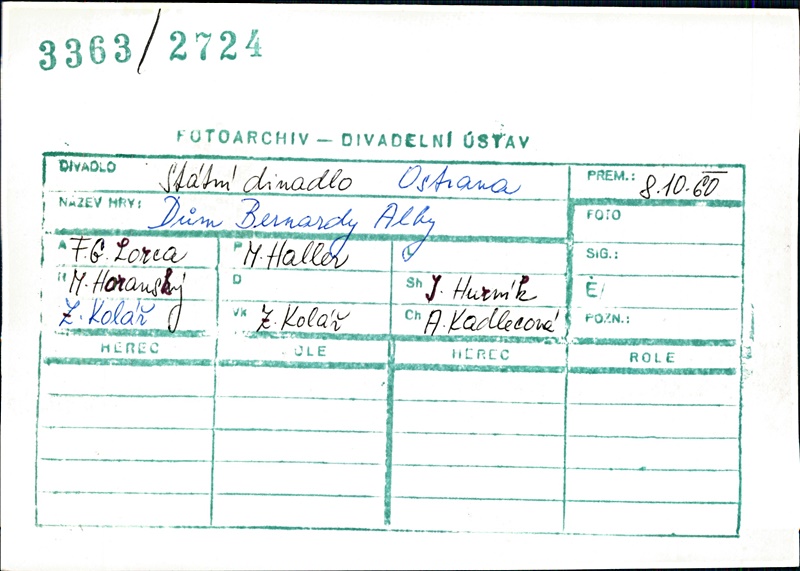 3363/2724
FOTOARCHIV — DIVADELNÍ ÚSTAV
DIVADLO Státní divadlo Ostrava PREM.: 8.10.60
NÁZEV HRY: Dům Bernardy Alby FOTO
A F.G. Lorca P M. Haller SIG.:
R M. Horanský D Sh J. Hurník Č/
Z. Kolář Vk Z. Kolář Ch A. Kadlecová POZN.:
HEREC OLE HEREC ROLE